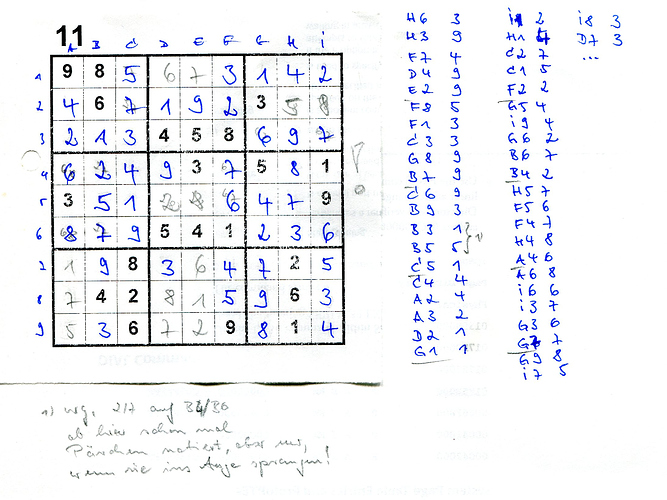 11
A B C D E F G H i
1 9 8 5 6 7 3 1 4 2
2 4 6 7 1 9 2 3 5 8
3 2 1 3 4 5 8 6 9 7
4 6 2 4 9 3 7 5 8 1
5 3 5 1 2 8 6 4 7 9
6 8 7 9 5 4 1 2 3 6
7 1 9 8 3 6 4 7 2 5
8 7 4 2 8 1 5 9 6 3
9 5 3 6 7 2 9 8 1 4
1) wg. 2/7 auf B4/B6
ab hier schon mal
Pärchen notiert, aber nur,
wenn sie ins Auge sprangen!
H6 3
H3 9
E7 4
D4 9
E2 9
F8 5
F1 3
C3 3
G8 9
B7 9
C6 9
B9 3
B3 1
B5 5 } 1)
C5 1
C4 4
A2 4
A3 2
D2 1
G1 1
i1 2
H1 4
C2 7
C1 5
F2 2
G5 4
i9 4
G6 2
B6 7
B4 2
H5 7
F5 6
F4 7
H4 8
A4 6
A6 8
i6 6
i3 7
G3 6
G7 7
G9 8
i7 5
i8 3
D7 3
...